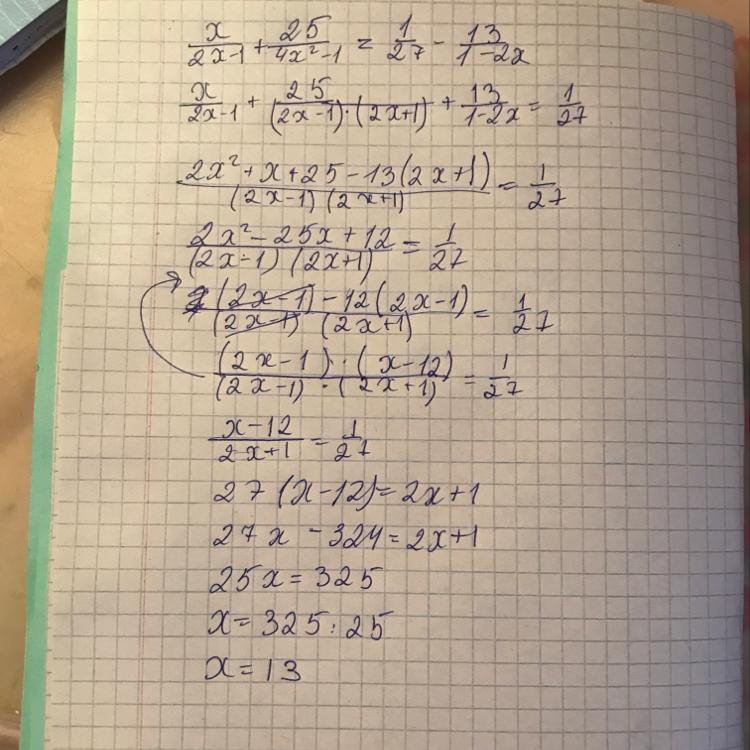 x/(2x-1) + 25/(4x²-1) = 1/27 - 13/(1-2x)
x/(2x-1) + 25/((2x-1)·(2x+1)) + 13/(1-2x) = 1/27
(2x²+x+25-13(2x+1))/((2x-1)(2x+1)) = 1/27
(2x²-25x+12)/((2x-1)(2x+1)) = 1/27
(2x-1)-12(2x-1)/((2x-1)(2x+1)) = 1/27
((2x-1)·(x-12))/((2x-1)·(2x+1)) = 1/27
(x-12)/(2x+1) = 1/27
27(x-12)=2x+1
27x-324=2x+1
25x=325
x=325:25
x=13